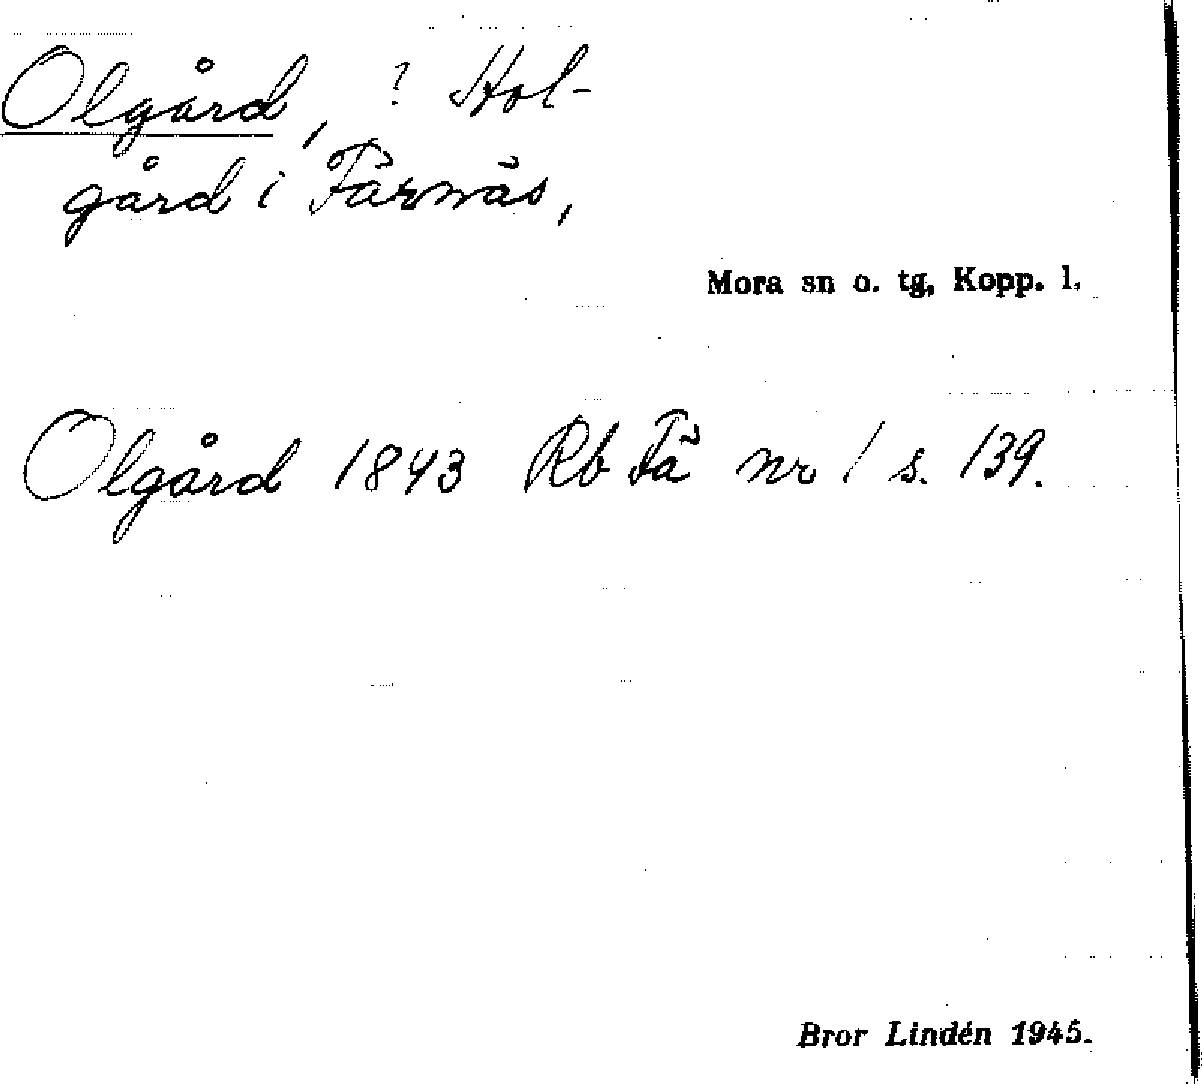 Olgård, ? Hol-
gård i Färnäs,
Mora sn o. tg, Kopp. l.
Olgård 1843 Rb Fä nr 1 s. 139.
Bror Lindén 1945.